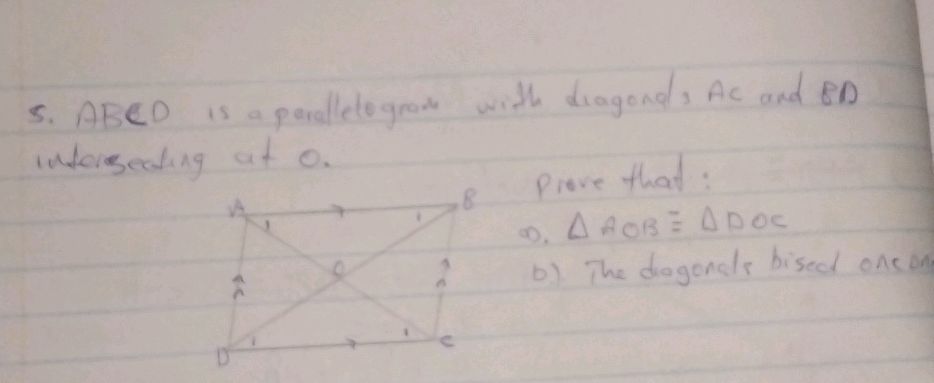 5. ABCD is a parallelogram with diagonals AC and BD
intersecting at O.
Prove that:
a). Δ AOB ≡ Δ DOC
b) The diagonals bisect one
A
B
O
D
C